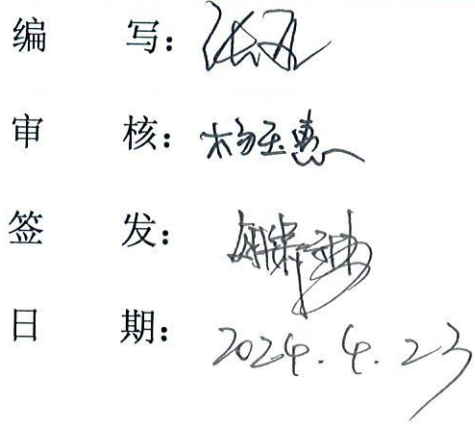 编 写：
审 核：杨玉惠
签 发：
日 期：2024.4.23